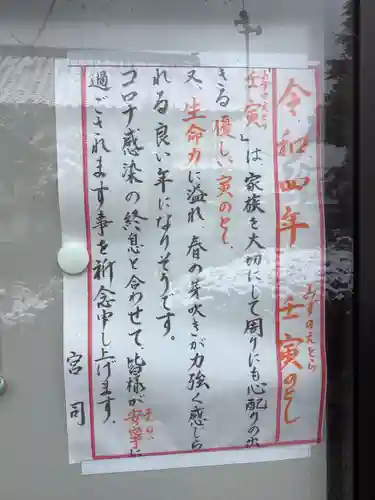 令和四年 壬寅のとし
みずのえとら
「壬寅」は家族を大切にして周りにも心配りの出
みずのえとら
きる優しい寅のとし、
又、生命力に溢れ、春の芽吹きが力強く感じら
れる良い年になりそうです。
コロナ感染の終息と合わせて、皆様が安寧に
あんねい
過ごされます事を祈念申し上げます。
宮司